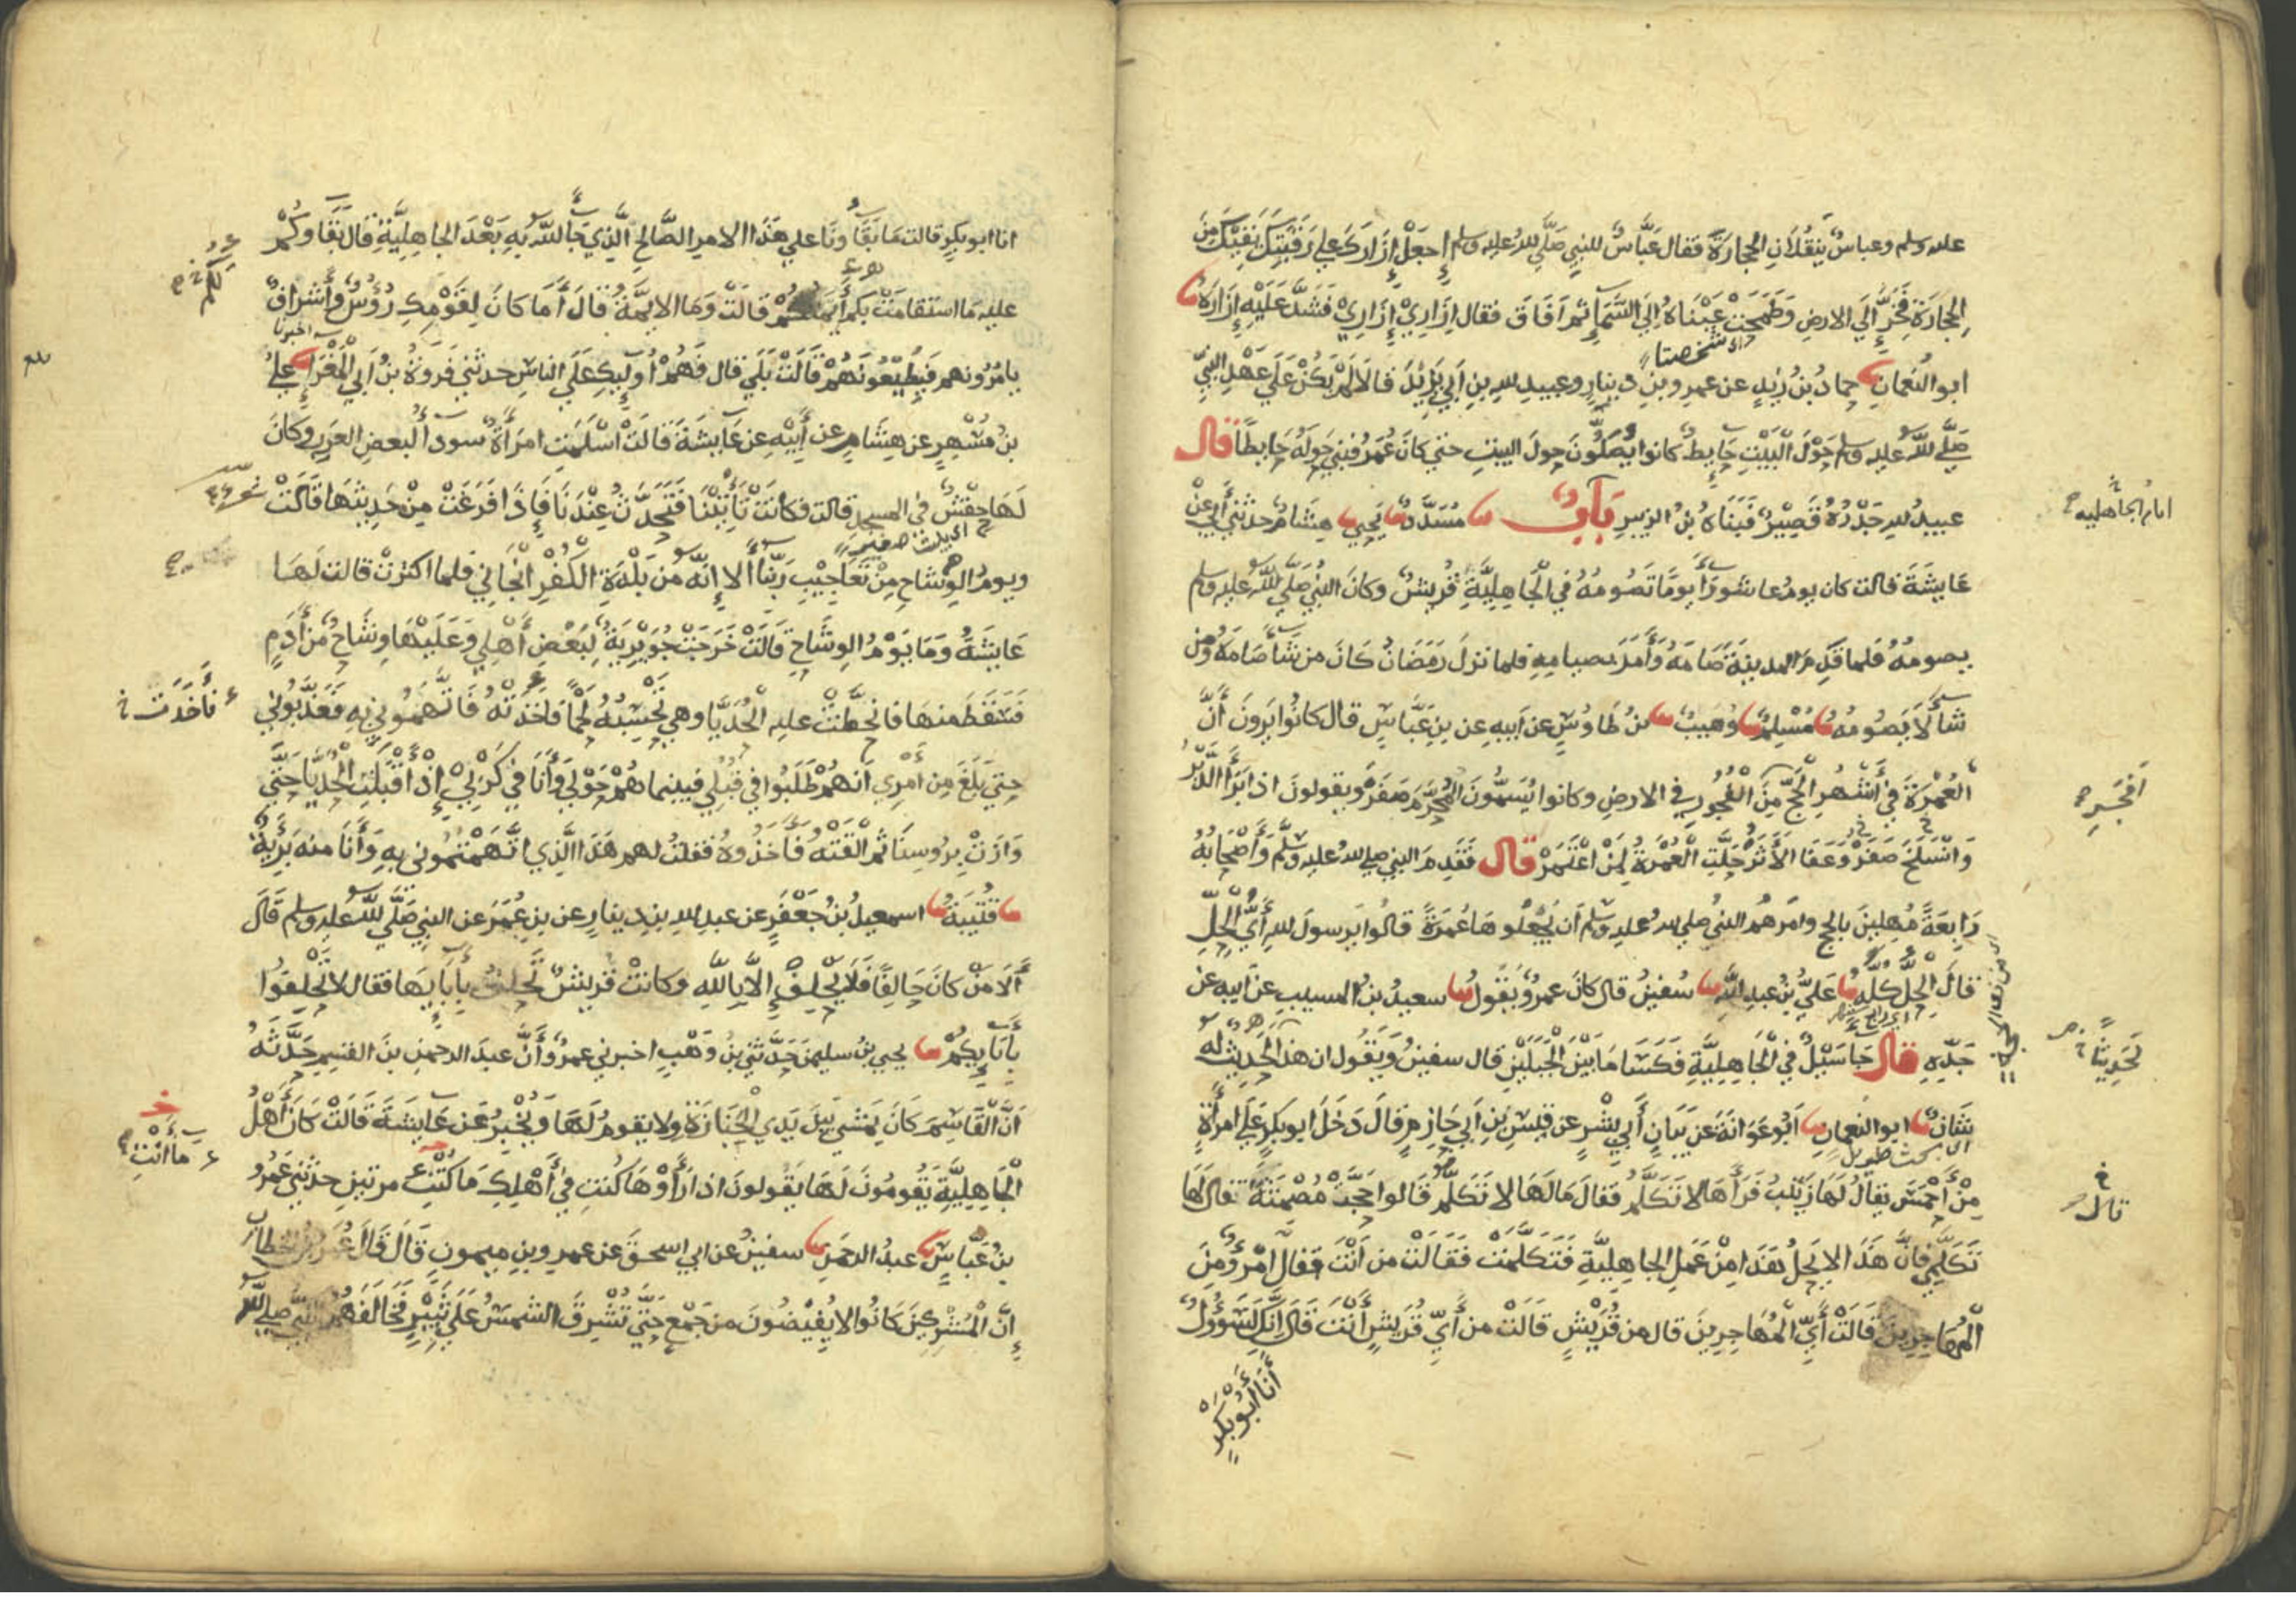 عليه وسلم وعباس ينقلان الحجارة فقال عباس للنبي صلي لله عليه وسلم اجعل إزارك علي رقبتك يقيك من
الحجارة فخر إلي الارض وطمحت عيناه الي السماء ثم افاق فقال إزاري إزاري فشد عليه إزاره
اي شخصتا
ابو النعمان حماد بن زيد عن عمرو بن دينار وعبيد لله بن ابي يزيد قالا لم يكن علي عهد النبي
صلي لله عليه وسلم حول البيت حايط كانوا يصلون حول البيت حتي كان عمر فبني حوله حايطا قال
عبيد لله جدره قصير فبناه بن الزبير باب مسدد يحيي هشام حدثني أبي عن
ايام الجاهلية
عايشة قالت كان يوم عاشورا يوما تصومه في الجاهلية قريش وكان النبي صلي لله عليه وسلم
يصومه فلما قدم المدينة صامه وأمر بصيامه فلما نزل رمضان كان من شا صامه ومن
شا لا يصومه مسلم وهيب بن طاوس عن ابيه عن بن عباس قال كانوا يرون أن
العمرة في أشهر الحج من الفجور في الارض وكانوا يسمون المحرم صفر ويقولون اذا برأ الدبر
وانسلخ صفر وعفا الأثر حلت العمرة لمن اعتمر قال فقدم النبي صلي لله عليه وسلم وأصحابه
رابعة مهلين بالحج وامرهم النبي صلي لله عليه وسلم أن يجعلوها عمرة قالوا يرسول لله أي الحل
قال الحل كله علي بن عبد الله سفين قال كان عمرو يقول سعيد بن المسيب عن ابيه عن
جده قال جا سيل في الجاهلية فكسا ما بين الجبلين قال سفين ويقول ان هذا الحديث له
شان ابو النعمان أبو عوانة عن بيان أبي بشر عن قيس بن ابي حازم قال دخل ابو بكر علي امرأة
اي بحث طويل
من أحمس يقال لها زينب فرأها لا تكلم فقال مالها لا تكلم قالوا حجت مصمتة فقال لها
قال
تكلمي فان هذا لا يحل هذا من عمل الجاهلية فتكلمت فقالت من أنت فقال امرؤ من
المهاجرين قالت أي المهاجرين قال من قريش قالت من أي قريش أنت قال إنك لسؤول
أنا أبو بكر
انا ابو بكر قالت ما بقاؤنا علي هذا الامر الصالح الذي جا لله به بعد الجاهلية قال بقاوكم
عليه ما استقامت بكم أيمتكم قالت وما الايمة قال أما كان لقومك رؤس وأشراف
اخبرنا
يامرونهم فيطيعونهم قالت بلي قال فهم أوليك علي الناس حدثني فروة بن أبي المغرا علي
بن مسهر عن هشام عن أبيه عن عايشة قالت اسلمت امرأة سودا لبعض العرب وكان
لها حفش في المسجد قالت فكانت تأتينا فتحدث عندنا فإذا فرغت من حديثها قالت
اي بيت صغير
ويوم الوشاح من تعاجيب ربنا ألا إنه من بلدة الكفر انجاني فلما اكثرت قالت لها
عايشة وما يوم الوشاح قالت خرجت جويرية لبعض أهلي وعليها وشاح من أدم
فسقط منها فانحطت عليه الحديا وهي تحسبه لحما فاخذته فاتهموني به فعذبوني
فأخذت
حتي بلغ من أمري انهم طلبوا في قبلي فبينما هم حولي وأنا في كربي إذ أقبلت الحديا حتي
وازت بروسنا ثم ألقته فأخذوه فقلت لهم هذا الذي اتهمتموني به وأنا منه بريئة
قتيبة اسمعيل بن جعفر عن عبد لله بن دينار عن بن عمر عن النبي صلي لله عليه وسلم قال
ألا من كان حالفا فلا يحلف إلا بالله وكانت قريش تحلف بأبايها فقال لا تحلفوا
بأبايكم يحيي بن سليمن حدثني بن وهب اخبرني عمرو أن عبد الرحمن بن القسم حدثه
ان القاسم كان يمشي بين يدي الجنازة ولا يقوم لها ويخبر عن عايشة قالت كان أهل
ما أنت
الجاهلية يقومون لها يقولون اذا رأوها كنت في أهلك ما كنت مرتين حدثني عمرو
بن عباس عبد الرحمن سفين عن ابي اسحق عن عمرو بن ميمون قال قال عمر بن الخطاب
إن المشركين كانوا لا يفيضون من جمع حتي تشرق الشمس علي ثبير فخالفهم النبي صلي لله